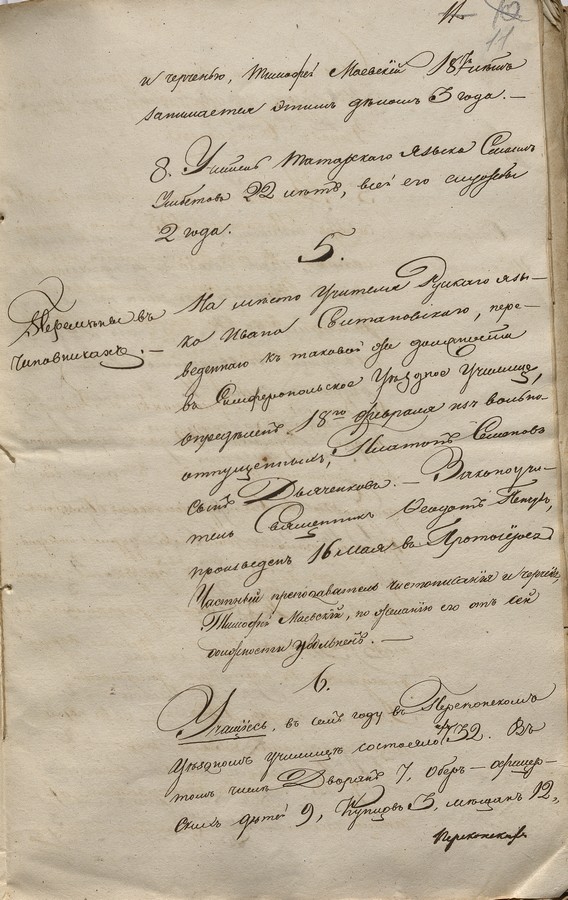 11
и черченью, Тимофей Маевскій 18 лѣтъ
занимается этимъ дѣломъ 3 года. —
8. Учитель Татарскаго языка
22 лѣтъ, всей его службы
2 года.
5.
Перемѣны въ
чиновникахъ. —
На мѣсто учителя Рускаго язы-
ка Ивана Свитановскаго, пере-
веденнаго къ таковой же должности
въ Симферопольское Уѣздное Училище,
опредѣленъ 18го февраля изъ вольно-
отпущенныхъ, Платонъ Семеновъ
сынъ Дьяченковъ. — Законоучи-
тель Священникъ Ѳеодотъ
произведенъ 16 мая въ Протоіереи
Частный преподаватель чистописанія и черченія,
Тимофей Маевскій, по желанію его отъ сей
должности уволенъ. —
6.
Учащихся, въ семъ году въ Перекопскомъ
Уѣздномъ училищѣ состояло 32. Въ
томъ числѣ Дворянъ 7, Оберъ-офицер-
скихъ дѣтей 9, Купцовъ 3, мѣщанъ 12,